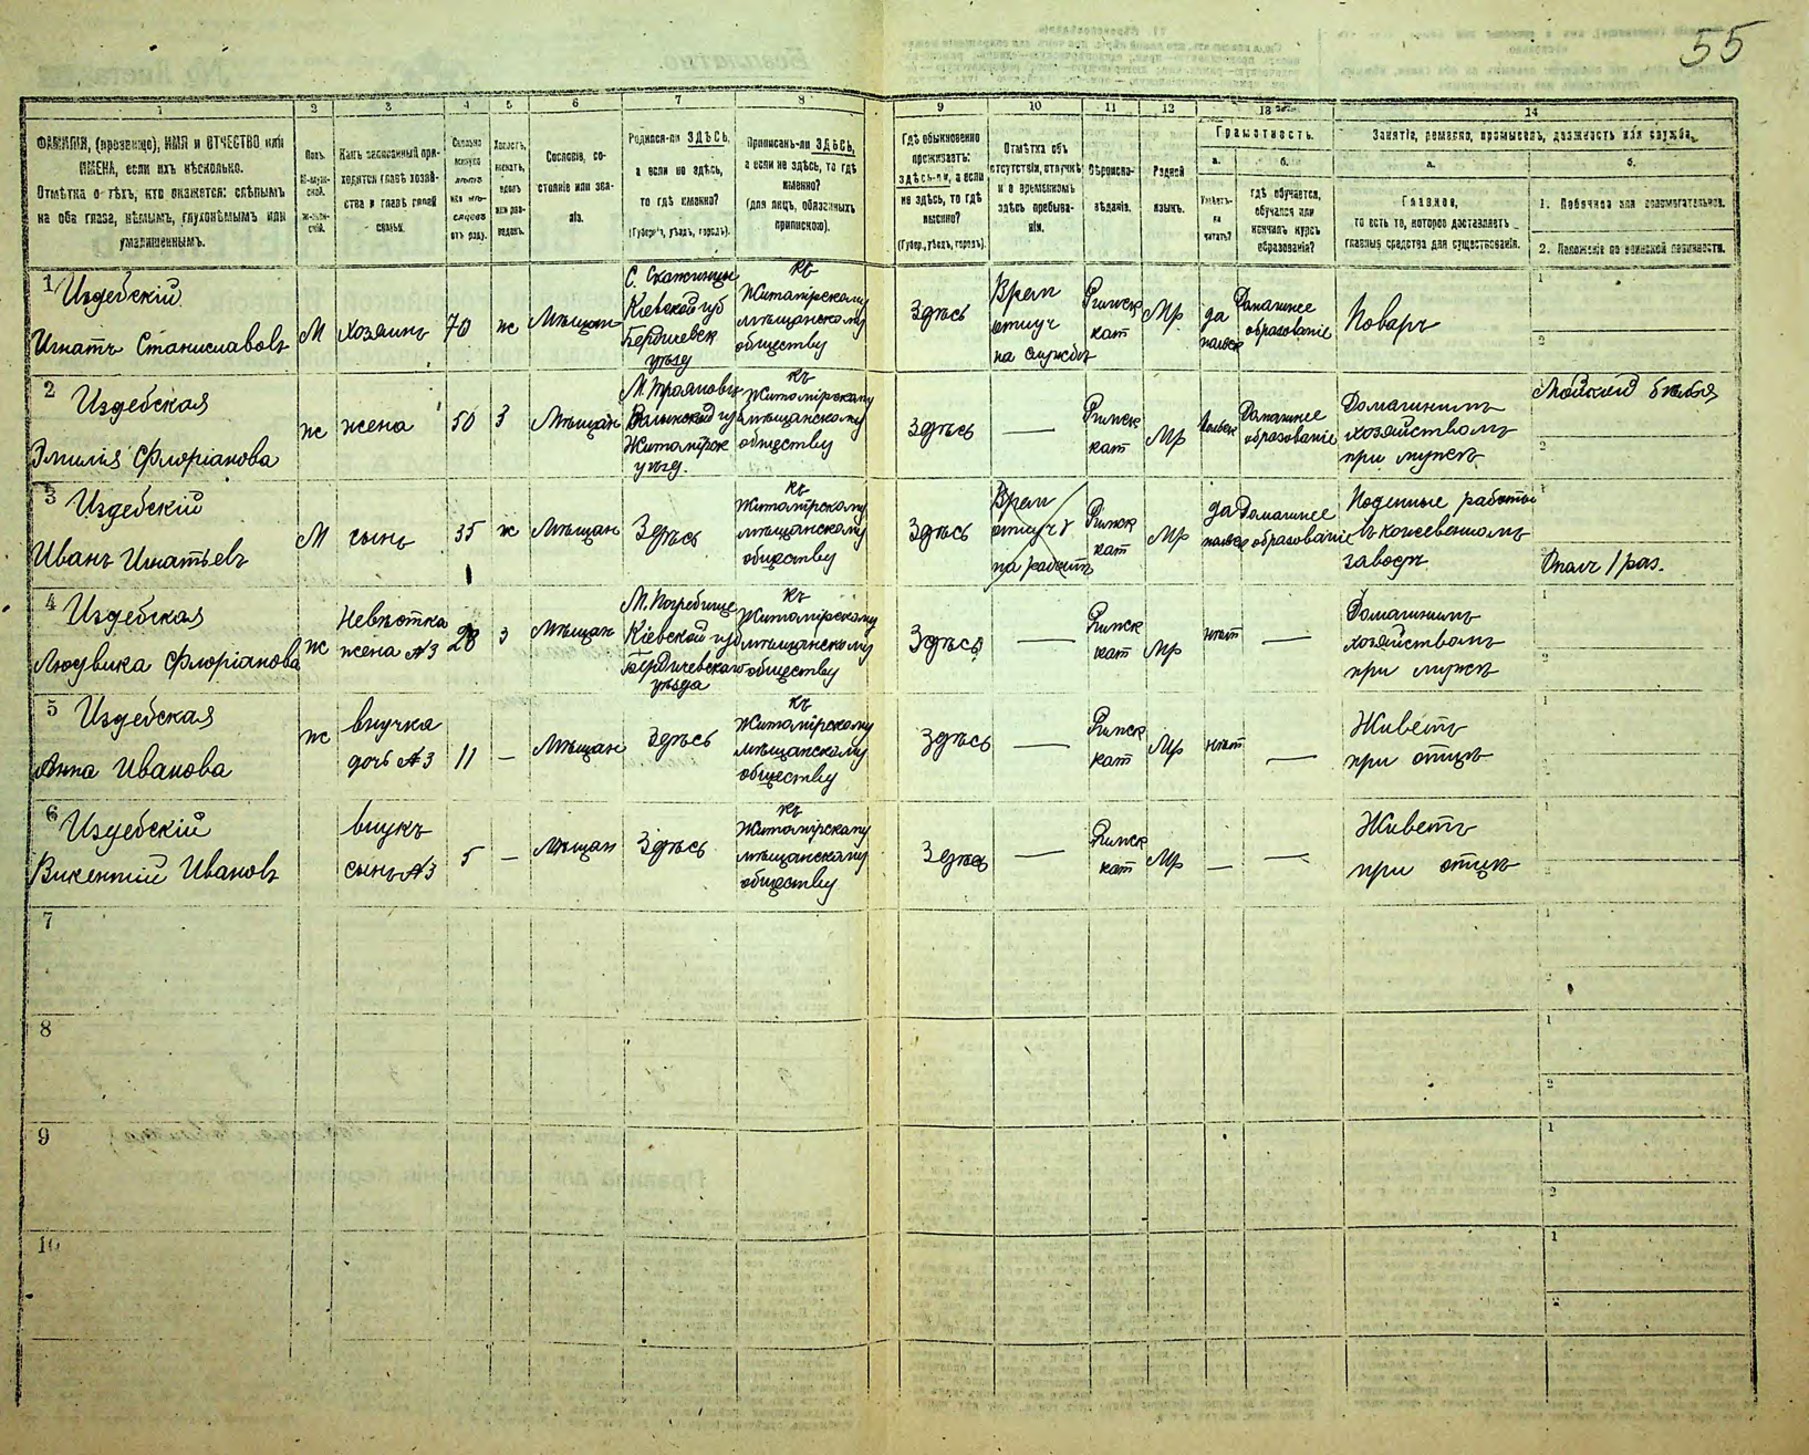 55
1 2 3 4 5 6 7 8 9 10 11 12 13 14
ФАМИЛІЯ, (прозвище), ИМЯ и ОТЧЕСТВО или
ИМЕНА, если ихъ нѣсколько.
Отмѣтка о тѣхъ, кто окажется: слѣпымъ
на оба глаза, нѣмымъ, глухонѣмымъ или
умалишеннымъ.
Полъ.
М-мужской.
Ж-женскій.
Какъ записанный при-
ходится главѣ хозяй-
ства и главѣ своей
семьи.
Сколько
минуло
лѣтъ
или мѣ-
сяцевъ
отъ роду.
Холостъ,
женатъ,
вдовъ
или раз-
веденъ.
Сословіе, со-
стояніе или зва-
ніе.
Родился-ли ЗДѢСЬ,
а если не здѣсь,
то гдѣ именно?
(Губернія, уѣздъ, городъ).
Приписанъ-ли ЗДѢСЬ,
а если не здѣсь, то гдѣ
именно?
(для лицъ, обязанныхъ
припискою).
Гдѣ обыкновенно
проживаетъ:
здѣсь-ли, а если
не здѣсь, то гдѣ
именно?
(Губер., уѣздъ, городъ).
Отмѣтка объ
отсутствіи, отлучкѣ
и о временномъ
здѣсь пребыва-
ніи.
Вѣроиспо-
вѣданіе.
Родной
языкъ.
Грамотность.
а.
Умѣетъ-
ли
читать?
б.
гдѣ обучается,
обучался или
кончилъ курсъ
образованія?
Занятіе, ремесло, промыселъ, должность или служба.
а.
Главное,
то есть то, которое доставляетъ
главныя средства для существованія.
б.
1. Побочное или вспомогательное.
2. Положеніе по воинской повинности.
1 Издебскій
Игнатъ Станиславовъ
М
хозяинъ
70
ж
Мѣщан
С. Скаженцы
Кіевской губ
Бердичевск
уѣзд
къ
Житомірскому
мѣщанскому
обществу
Здѣсь
Врем
отлуч
на службѣ
Римск
кат
да
Домашнее
образованіе
Поваръ
1
2
2 Издебская
Эмилія Флоріанова
ж
жена
50
З
Мѣщан
Волынской губ
Житомірск
уѣзд.
къ
Житомірскому
мѣщанскому
обществу
Здѣсь
—
Римск
кат
Домашнее
образованіе
Домашнимъ
хозяйствомъ
при мужѣ
2
3 Издебскій
Иванъ Игнатьевъ
М
сынъ
35
ж
Мѣщан
Здѣсь
къ
Житомірскому
мѣщанскому
обществу
Здѣсь
Врем
отлуч
на работѣ
Римск
кат
да
Домашнее
образованіе
Поденные работы
въ кожевенномъ
заводѣ
Опол 1 раз.
4 Издебская
Людвика Флоріанова
ж
Невѣстка
жена №3
28
з
Мѣщан
М. Погребище
Кіевской губ
Бердичевскаго
уѣзда
къ
Житомірскому
мѣщанскому
обществу
Здѣсь
—
Римск
кат
нѣт
—
Домашнимъ
хозяйствомъ
при мужѣ
1
2
5 Издебская
Анна Иванова
ж
внучка
дочь №3
11
—
Мѣщан
Здѣсь
къ
Житомірскому
мѣщанскому
обществу
Здѣсь
—
Римск
кат
нѣт
—
Живетъ
при отцѣ
1
2
6 Издебскій
Викентій Ивановъ
внукъ
сынъ №3
5
—
Мѣщан
Здѣсь
къ
Житомірскому
мѣщанскому
обществу
Здѣсь
—
Римск
кат
—
—
Живетъ
при отцѣ
1
2
7
1
2
8
1
2
9
1
2
10
1
2